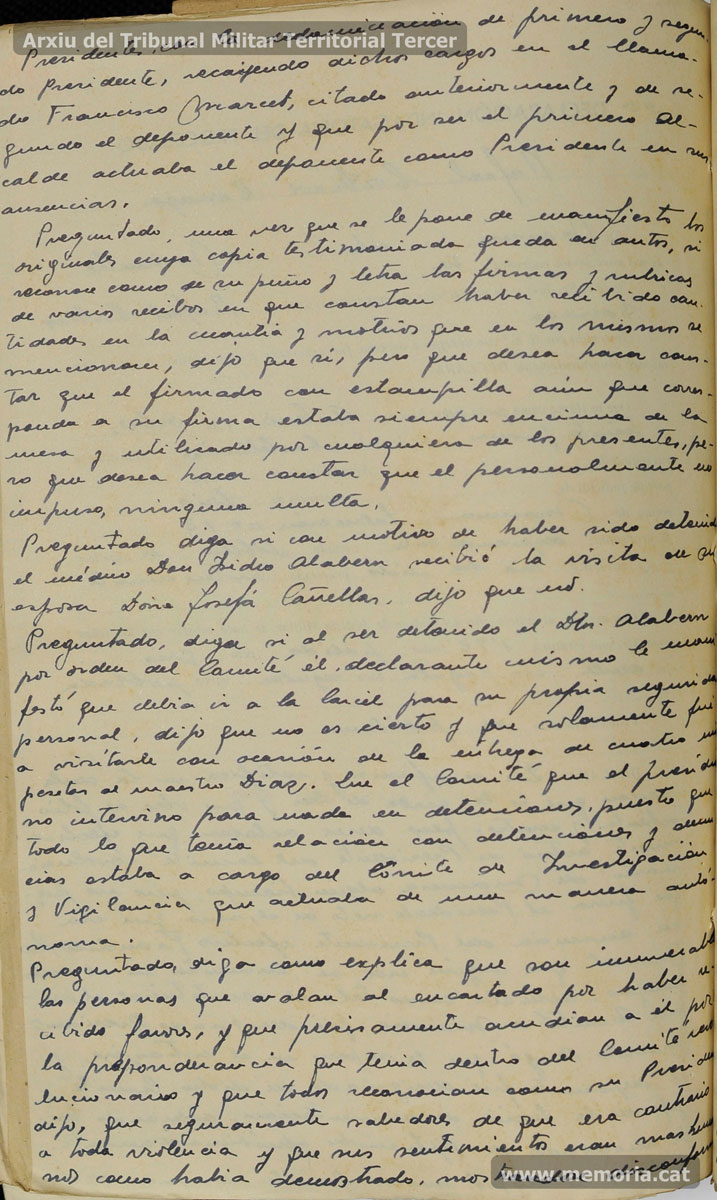 Arxiu del Tribunal Militar Territorial Tercer
Presidentes, con la denominación de primero y segun-
do Presidente, recayendo dichos cargos en el llama-
do Francisco Marcet, citado anteriormente y de se-
gundo el deponente y que por ser el primero Al-
calde actuaba el deponente como Presidente en sus
ausencias.
Preguntado, una vez que se le pone de manifiesto los
originales cuya copia testimoniada queda en autos, si
reconoce como de su puño y letra las firmas y rubricas
de varios recibos en que constan haber recibido can-
tidades en la cuantia y motivos que en los mismos se
mencionan, dijo que si, pero que desea hacer cons-
tar que el firmado con estampilla aún que corres-
ponda a su firma estaba siempre encima de la
mesa y utilizado por cualquiera de los presentes, pe-
ro que desea hacer constar que el personalmente no
impuso, ninguna multa.
Preguntado diga si con motivo de haber sido detenid
el médico Don Isidro Alabern recibió la visita de su
esposa Doña Josefa Cañellas, dijo que no.
Preguntado, diga si al ser detenido el Dtr. Alabern
por orden del Comité él declarante mismo le mani
festó que debia ir a la Carcel para su propia segurida
personal, dijo que no es cierto y que solamente fui
a visitarle con ocasión de la entrega de cuatro mil
pesetas al maestro Diaz. Que el Comité que el presid
no intervino para nada en detenciones, puesto que
todo lo que tenia relación con detenciones y denun
cias estaba a cargo del Cómite de Investigación
y Vigilancia que actuaba de una manera autó-
noma.
Preguntado, diga como explica que son innumerabl
las personas que avalan al encartado por haber re-
cibido favores, y que precisamente acudian a él por
la preponderancia que tenia dentro del Comité revo
lucionario y que todos reconocian como su Preside
dijo, que seguramente sabedores de que era contrario
a toda violencia y que sus sentimientos eran mas huma
nos como habia demostrado,
www.memoria.cat